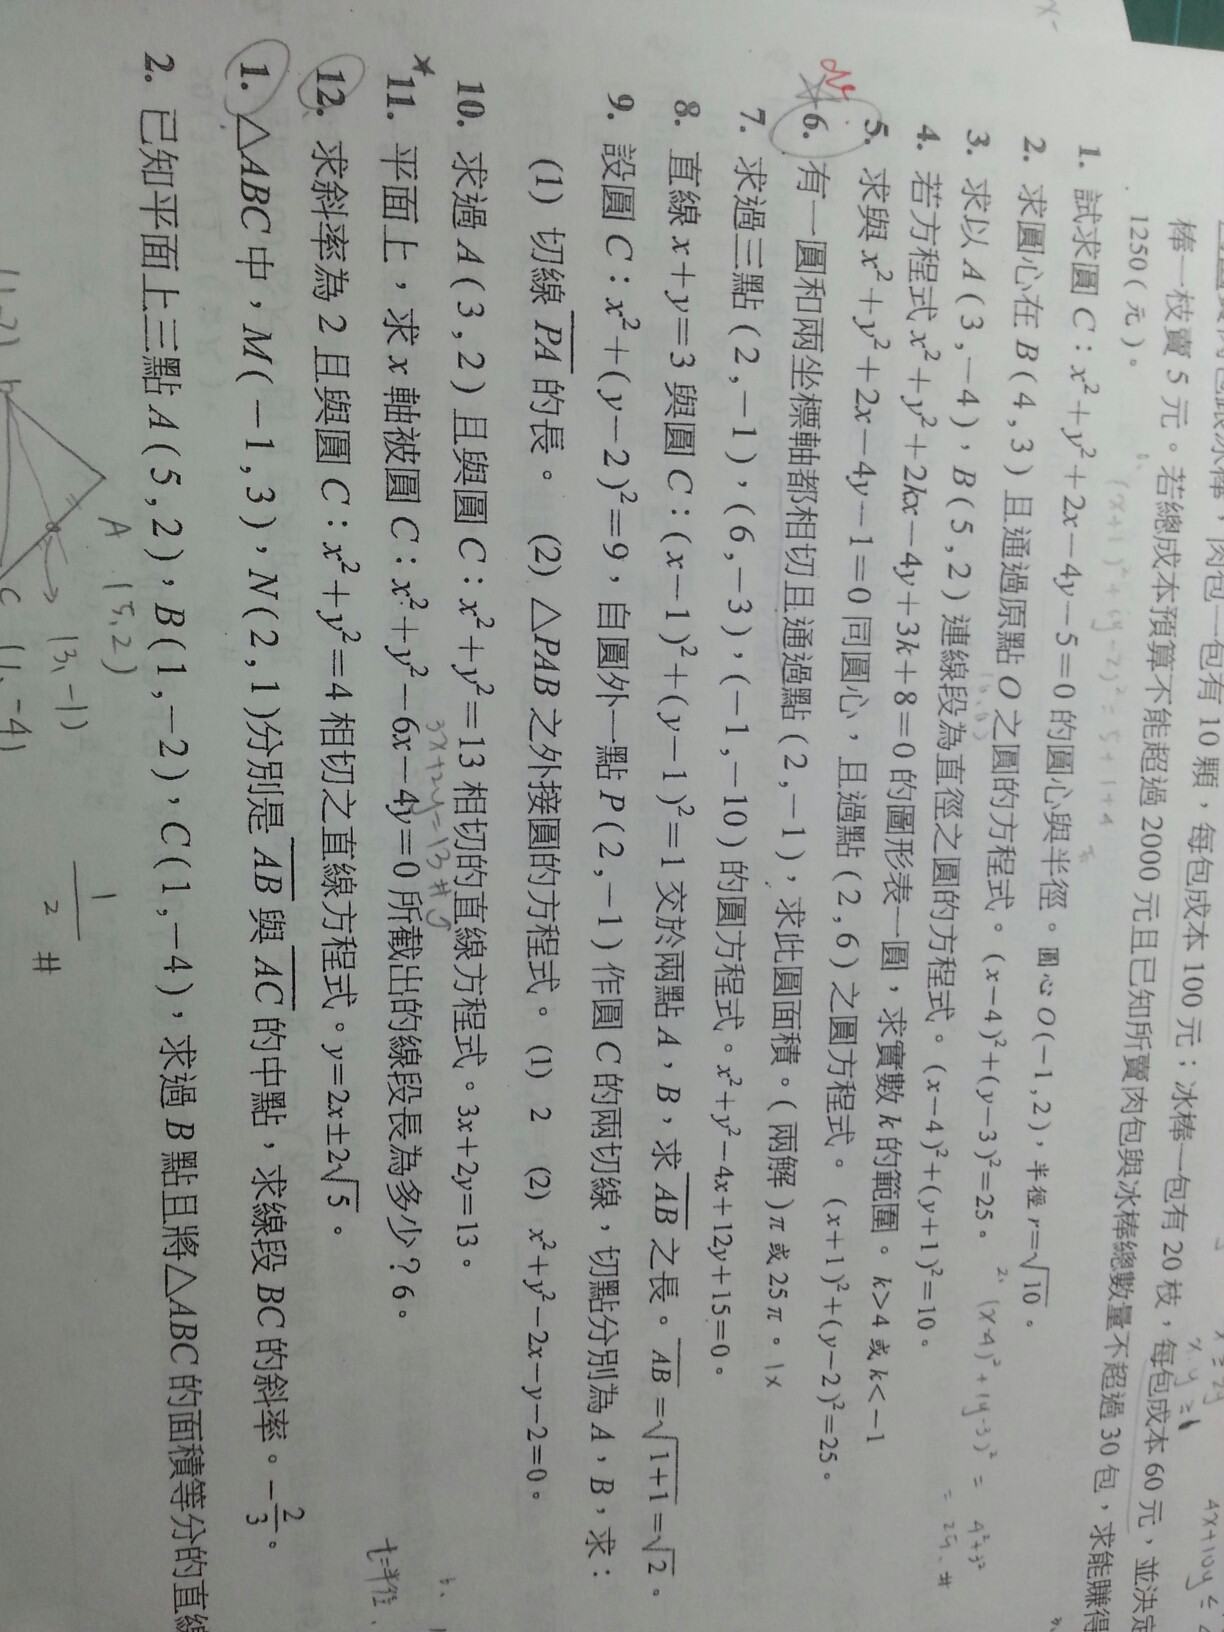 棒一枝賣 5 元。若總成本預算不能超過 2000 元且已知所賣肉包與冰棒總數量不超過 30 包,求能賺得
1250(元)。
1. 試求圓 C:x²+y²+2x-4y-5=0 的圓心與半徑。圓心 O(-1,2),半徑 r=√10。
2. 求圓心在 B(4,3) 且通過原點 O 之圓的方程式。(x-4)²+(y-3)²=25。
3. 求以 A(3,-4),B(5,2) 連線段為直徑之圓的方程式。(x-4)²+(y+1)²=10。
4. 若方程式 x²+y²+2kx-4y+3k+8=0 的圖形表一圓,求實數 k 的範圍。k>4 或 k<-1
5. 求與 x²+y²+2x-4y-1=0 同圓心,且過點 (2,6) 之圓方程式。(x+1)²+(y-2)²=25。
6. 有一圓和兩坐標軸都相切且通過點 (2,-1),求此圓面積。(兩解) π 或 25π。
7. 求過三點 (2,-1),(6,-3),(-1,-10) 的圓方程式。x²+y²-4x+12y+15=0。
8. 直線 x+y=3 與圓 C:(x-1)²+(y-1)²=1 交於兩點 A,B,求 AB 之長。AB=√1+1=√2。
9. 設圓 C:x²+(y-2)²=9,自圓外一點 P(2,-1) 作圓 C 的兩切線,切點分別為 A,B,求:
(1) 切線 PA 的長。 (2) △PAB 之外接圓的方程式。 (1) 2 (2) x²+y²-2x-y-2=0。
10. 求過 A(3,2) 且與圓 C:x²+y²=13 相切的直線方程式。3x+2y=13。
3x+2y=13 #
11. 平面上,求 x 軸被圓 C:x²+y²-6x-4y=0 所截出的線段長為多少?6。
12. 求斜率為 2 且與圓 C:x²+y²=4 相切之直線方程式。y=2x±2√5。
t=半徑
1. △ABC 中,M(-1,3),N(2,1)分別是 AB 與 AC 的中點,求線段 BC 的斜率。-2/3。
2. 已知平面上三點 A(5,2),B(1,-2),C(1,-4),求過 B 點且將△ABC 的面積等分的直線
A (5,2)
(3,-1)
C (1,-4)
1/2 #